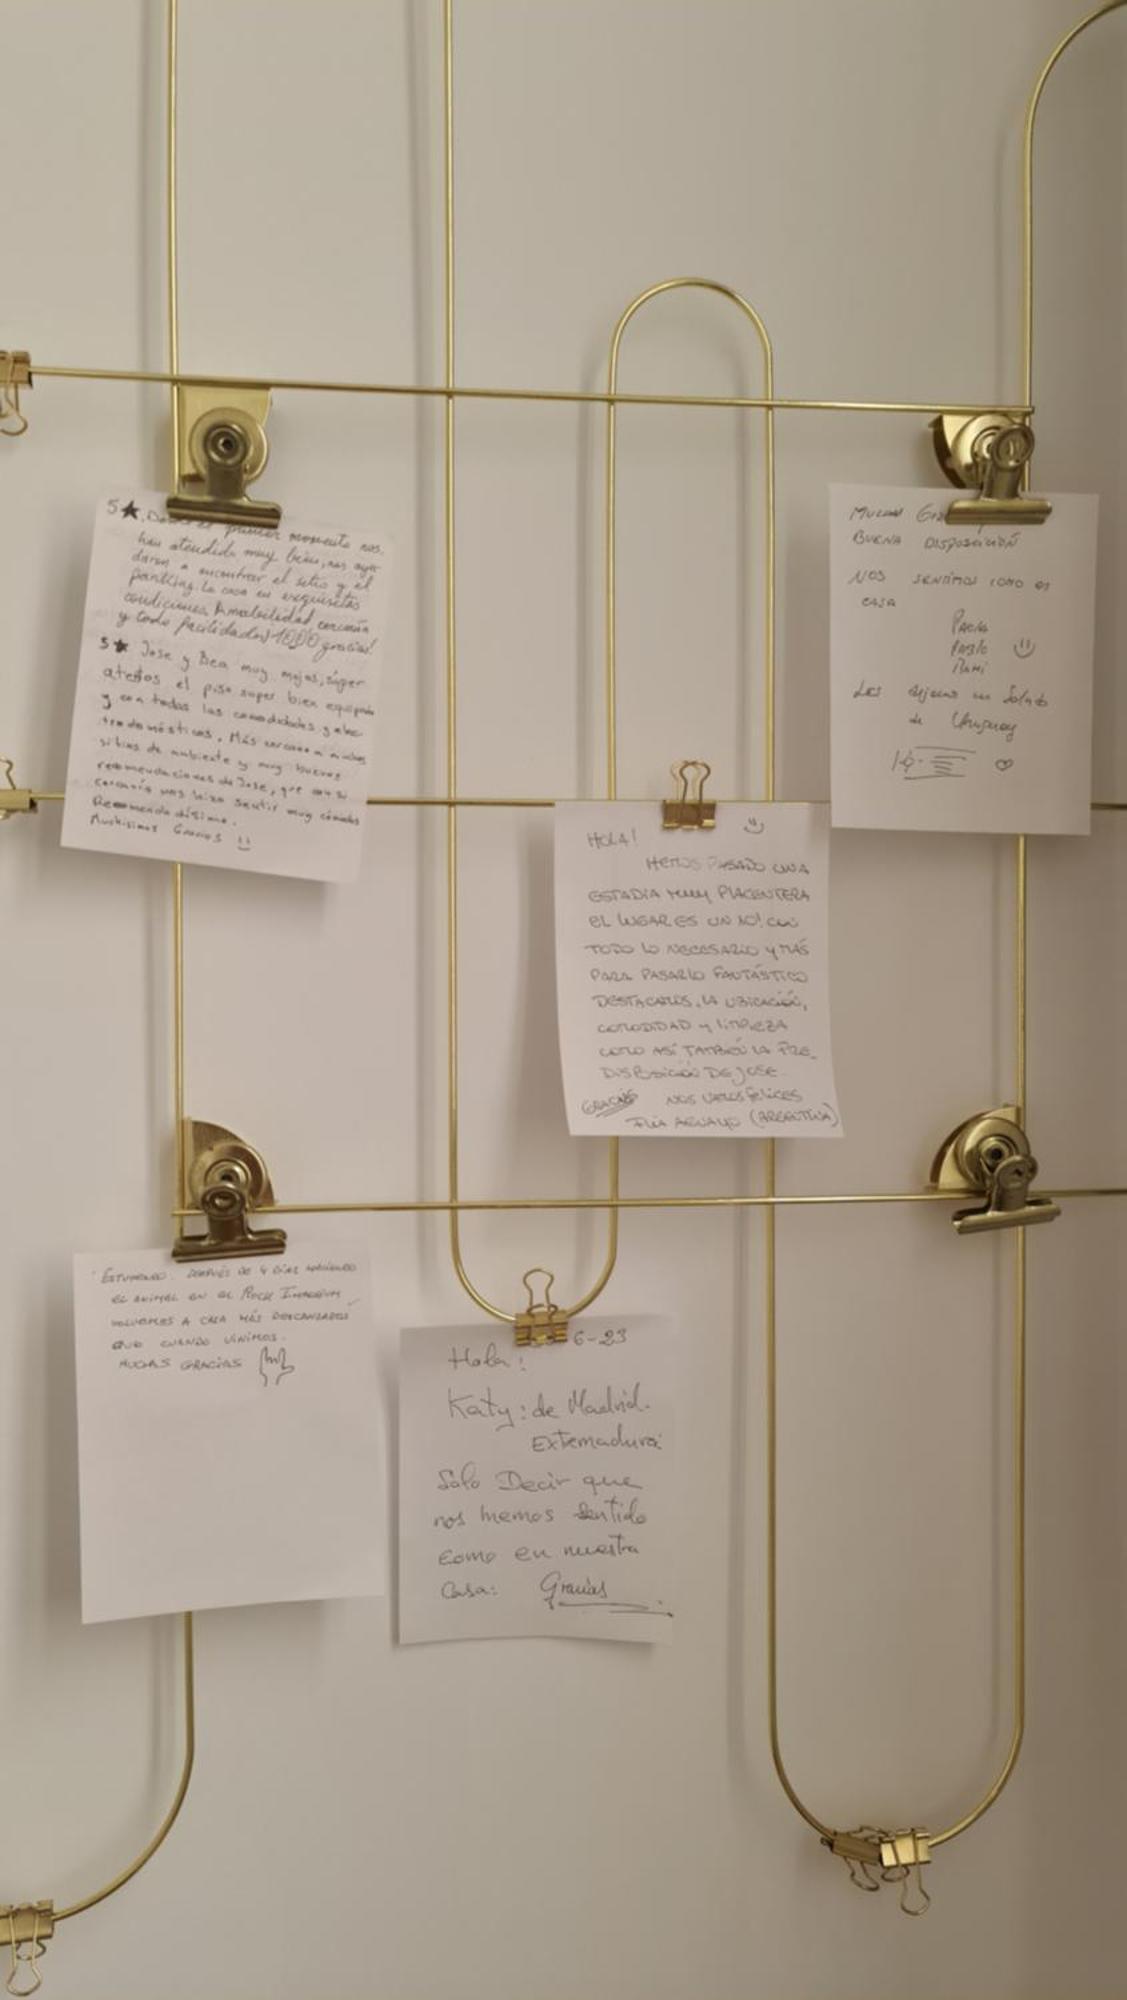 5★. Desde el primer momento nos
han atendido muy bien, nos ayu-
daron a encontrar el sitio y el
parking. La casa en exquisitas
condiciones. Amabilidad cercanía
y todo facilidades! 1000 gracias!
5★ Jose y Bea muy majos, súper
atentos el piso super bien equipado
y con todas las comodidades y elec-
trodomésticos. Más cercano a muchos
sitios de ambiente y muy buenas
recomendaciones de Jose, que con su
cercanía nos hizo sentir muy cómodos
Recomendadísimo.
Muchísimas Gracias
MUCHAS
BUENA DISPOSICIÓN
NOS SENTIMOS COMO EN
CASA
PAOLA
PABLO
Les dejamos un Saludo
de Uruguay
HOLA!
HEMOS PASADO UNA
ESTADIA MUY PLACENTERA
EL LUGAR ES UN 10! CON
TODO LO NECESARIO Y MÁS
PARA PASARLO FANTÁSTICO
DESTACAMOS, LA UBICACIÓN,
COMODIDAD Y LIMPIEZA
COMO ASÍ TAMBIÉN LA PRE-
DISPOSICIÓN DE JOSE.
GRACIAS NOS VAMOS FELICES
FLIA AGUAYO (ARGENTINA)
ESTUPENDO. DESPUÉS DE 4 DÍAS HACIENDO
EL ANIMAL EN EL ROCK IMPERIUM
VOLVEMOS A CASA MÁS DESCANSADOS
QUE CUANDO VINIMOS.
MUCHAS GRACIAS
6-23
Hola:
Katy: de Madrid.
Extremadura
Solo Decir que
nos hemos sentido
como en nuestra
Casa: Gracias